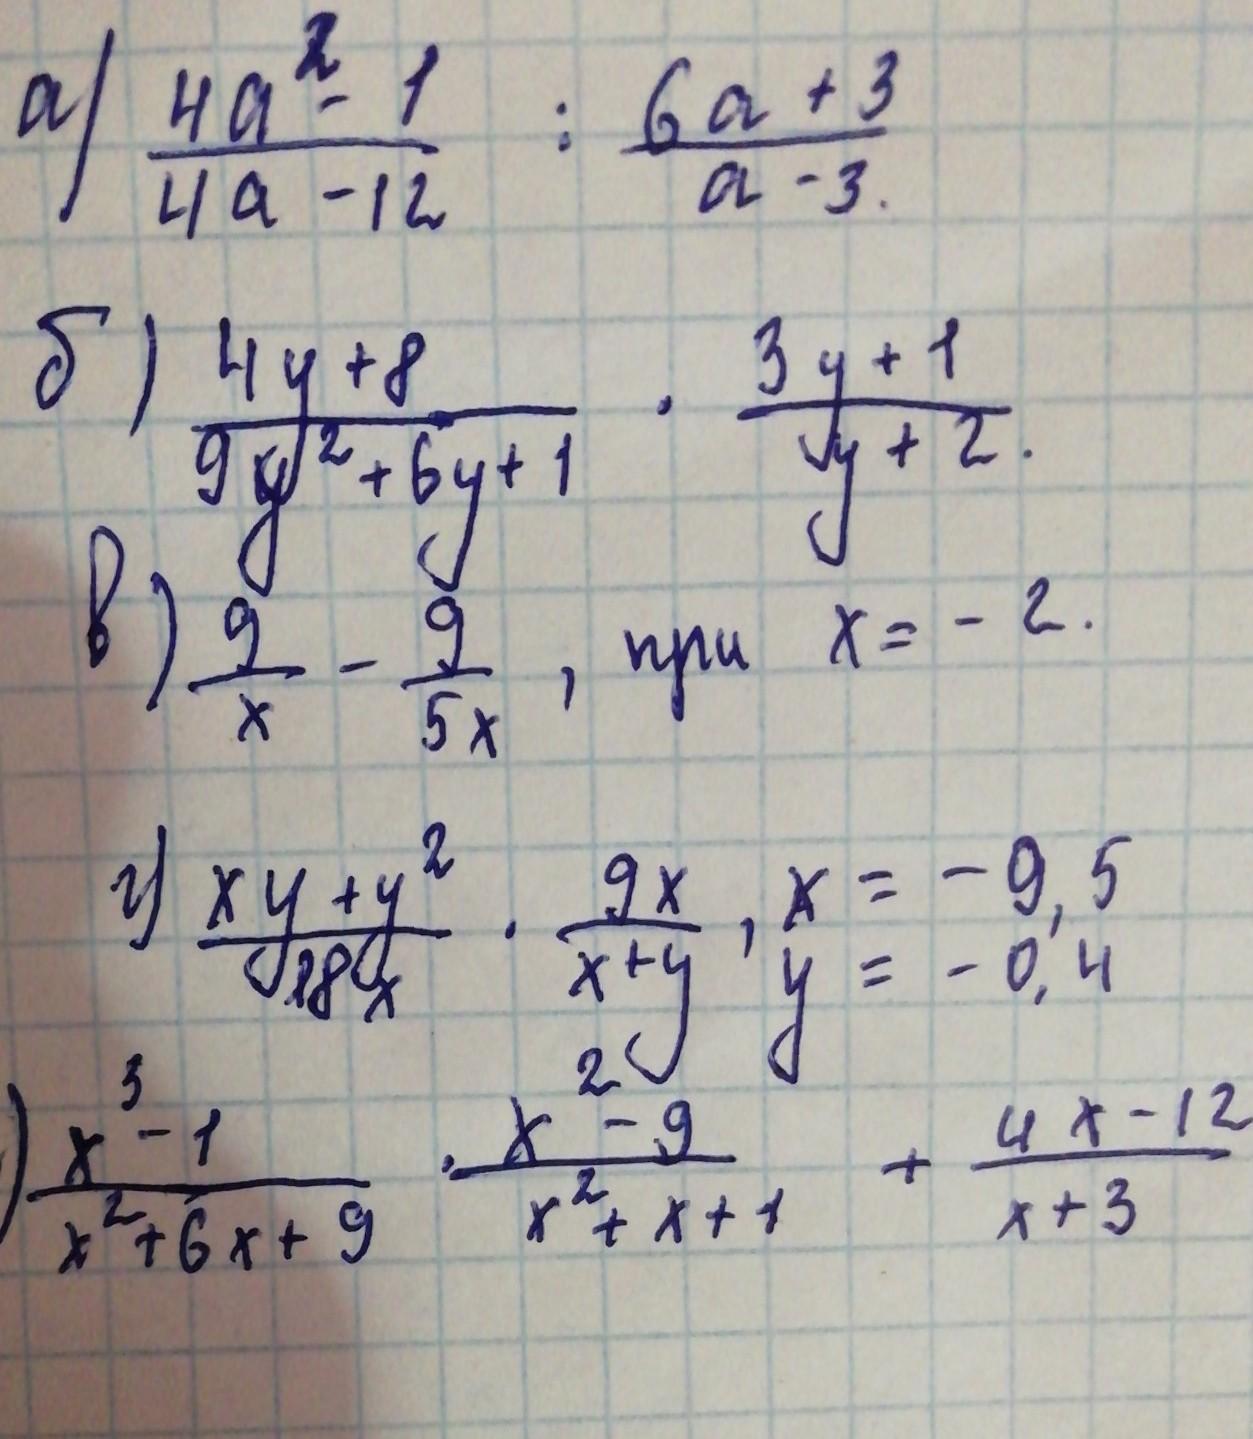 а) (4a² - 1)/(4a - 12) : (6a + 3)/(a - 3).
б) (4y + 8)/(9y² + 6y + 1) · (3y + 1)/(y + 2).
в) 9/x - 9/5x, при x = - 2.
г) (xy + y²)/18x · 9x/(x + y), x = - 9,5
y = - 0,4
) (x³ - 1)/(x² + 6x + 9) · (x² - 9)/(x² + x + 1) + (4x - 12)/(x + 3)